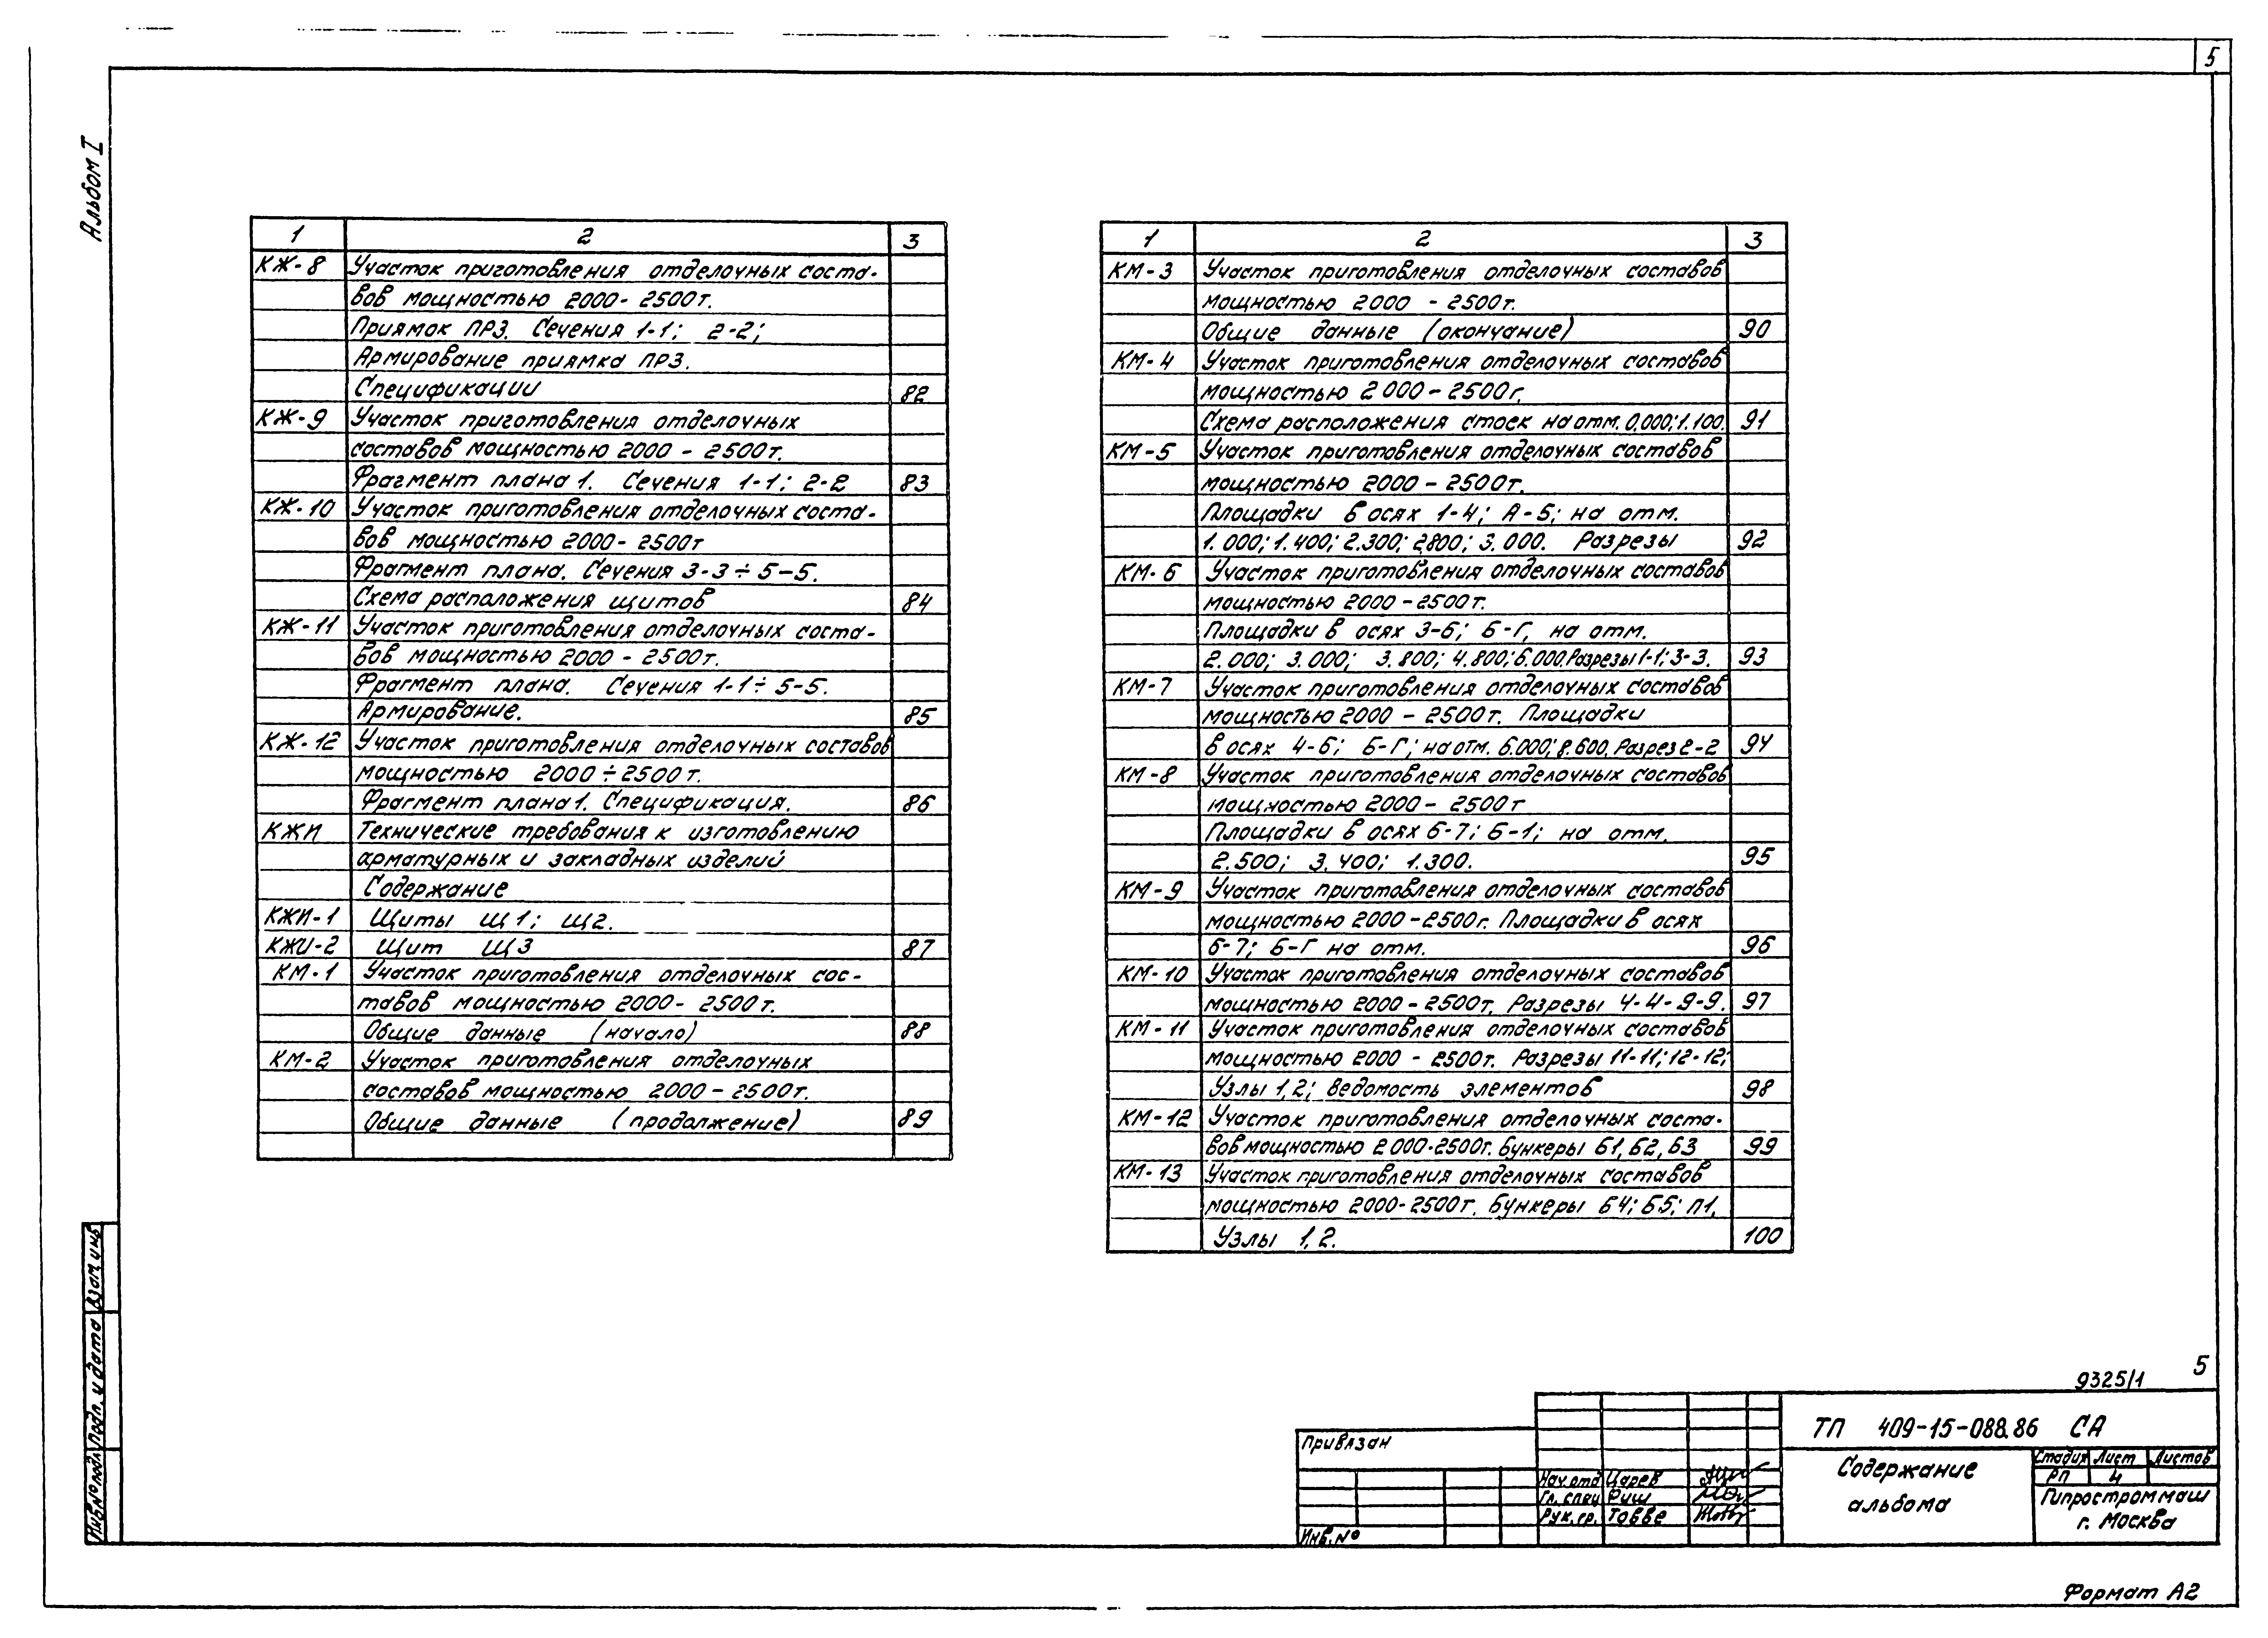 5
Альбом I
1 2 3
КЖ-8 Участок приготовления отделочных соста-
вов мощностью 2000-2500т.
Приямок ПР3. Сечения 1-1; 2-2;
Армирование приямка ПР3.
Спецификации 82
КЖ-9 Участок приготовления отделочных
составов мощностью 2000-2500т.
Фрагмент плана 1. Сечения 1-1; 2-2 83
КЖ-10 Участок приготовления отделочных соста-
вов мощностью 2000-2500т
Фрагмент плана. Сечения 3-3÷5-5.
Схема расположения щитов 84
КЖ-11 Участок приготовления отделочных соста-
вов мощностью 2000-2500т.
Фрагмент плана. Сечения 1-1÷5-5.
Армирование. 85
КЖ-12 Участок приготовления отделочных составов
мощностью 2000÷2500т.
Фрагмент плана 1. Спецификация. 86
КЖИ Технические требования к изготовлению
арматурных и закладных изделий
Содержание
КЖИ-1 Щиты Щ1; Щ2.
КЖИ-2 Щит Щ3 87
КМ-1 Участок приготовления отделочных сос-
тавов мощностью 2000-2500т.
Общие данные (начало) 88
КМ-2 Участок приготовления отделочных
составов мощностью 2000-2500т.
Общие данные (продолжение) 89
1 2 3
КМ-3 Участок приготовления отделочных составов
мощностью 2000-2500т.
Общие данные (окончание) 90
КМ-4 Участок приготовления отделочных составов
мощностью 2000-2500г.
Схема расположения стоек на отм. 0.000; 1.100. 91
КМ-5 Участок приготовления отделочных составов
мощностью 2000-2500т.
Площадки в осях 1-4; А-Б; на отм.
1.000; 1.400; 2.300; 2.800; 3.000. Разрезы 92
КМ-6 Участок приготовления отделочных составов
мощностью 2000-2500т.
Площадки в осях 3-6; Б-Г, на отм.
2.000; 3.000; 3.800; 4.800; 6.000. Разрезы 1-1; 3-3. 93
КМ-7 Участок приготовления отделочных составов
мощностью 2000-2500т. Площадки
в осях 4-6; Б-Г; на отм. 6.000; 8.600. Разрез 2-2 94
КМ-8 Участок приготовления отделочных составов
мощностью 2000-2500т
Площадки в осях 6-7; Б-1; на отм.
2.500; 3.400; 1.300. 95
КМ-9 Участок приготовления отделочных составов
мощностью 2000-2500г. Площадки в осях
6-7; Б-Г на отм. 96
КМ-10 Участок приготовления отделочных составов
мощностью 2000-2500т. Разрезы 4-4-9-9. 97
КМ-11 Участок приготовления отделочных составов
мощностью 2000-2500т. Разрезы 11-11; 12-12;
Узлы 1,2; Ведомость элементов 98
КМ-12 Участок приготовления отделочных соста-
вов мощностью 2000-2500г. Бункеры Б1, Б2, Б3 99
КМ-13 Участок приготовления отделочных составов
мощностью 2000-2500т. Бункеры Б4; Б5; П1.
Узлы 1,2. 100
Взам. инв
Подп. и дата
Инв№ подл
5
9325/1
ТП 409-15-088.86 СА
Привязан
Инв. №
Нач. отд Царев
Гл. спец Риш
Рук. гр. Товве
Содержание
альбома
Стадия Лист Листов
РП 4
Гипростроммаш
г. Москва
Формат А2